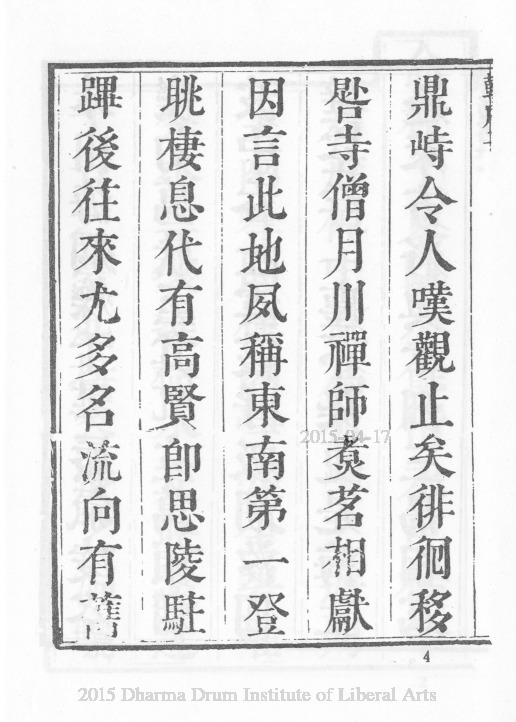 鼎峙令人嘆觀止矣徘徊移
晷寺僧月川禪師煑茗相獻
因言此地夙稱東南第一登
眺棲息代有高賢卽思陵駐
蹕後往來尤多名流向有舊
4
2015-04-17
2015 Dharma Drum Institute of Liberal Arts